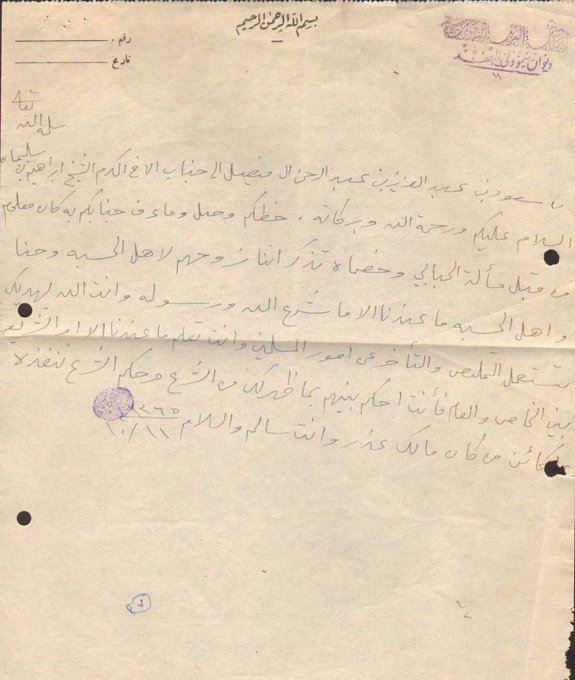 بسم الله الرحمن الرحيم
رقم
تاريخ
ديوان
تعالى
سلمه الله
من سعود بن عبد العزيز بن عبد الرحمن ال فيصل الى جناب الاخ المكرم الشيخ ابراهيم بن سليمان
السلام عليكم ورحمة الله وبركاته . خطكم وصل وما عرف جنابكم به كان معلوم
من قبل مسألة الجبالي وخصماه تذكر اننا نزوحهم لاهل الحسبه وحنا
واهل الحسبه ما عندنا الا ما شرع الله ورسوله وانت الله يهديك
تستعمل التملص والتأخر عن امور المسلمين وانت تعلم ما عندنا الا امر الشريعة
بين الخاص والعام فأنت احكم بينهم بما ظهر لك من الشرع وحكم الشرع ننفذه
على كائن من كان مالك عذر وانت سالم والسلام
١٣٦٥
١٠/١١